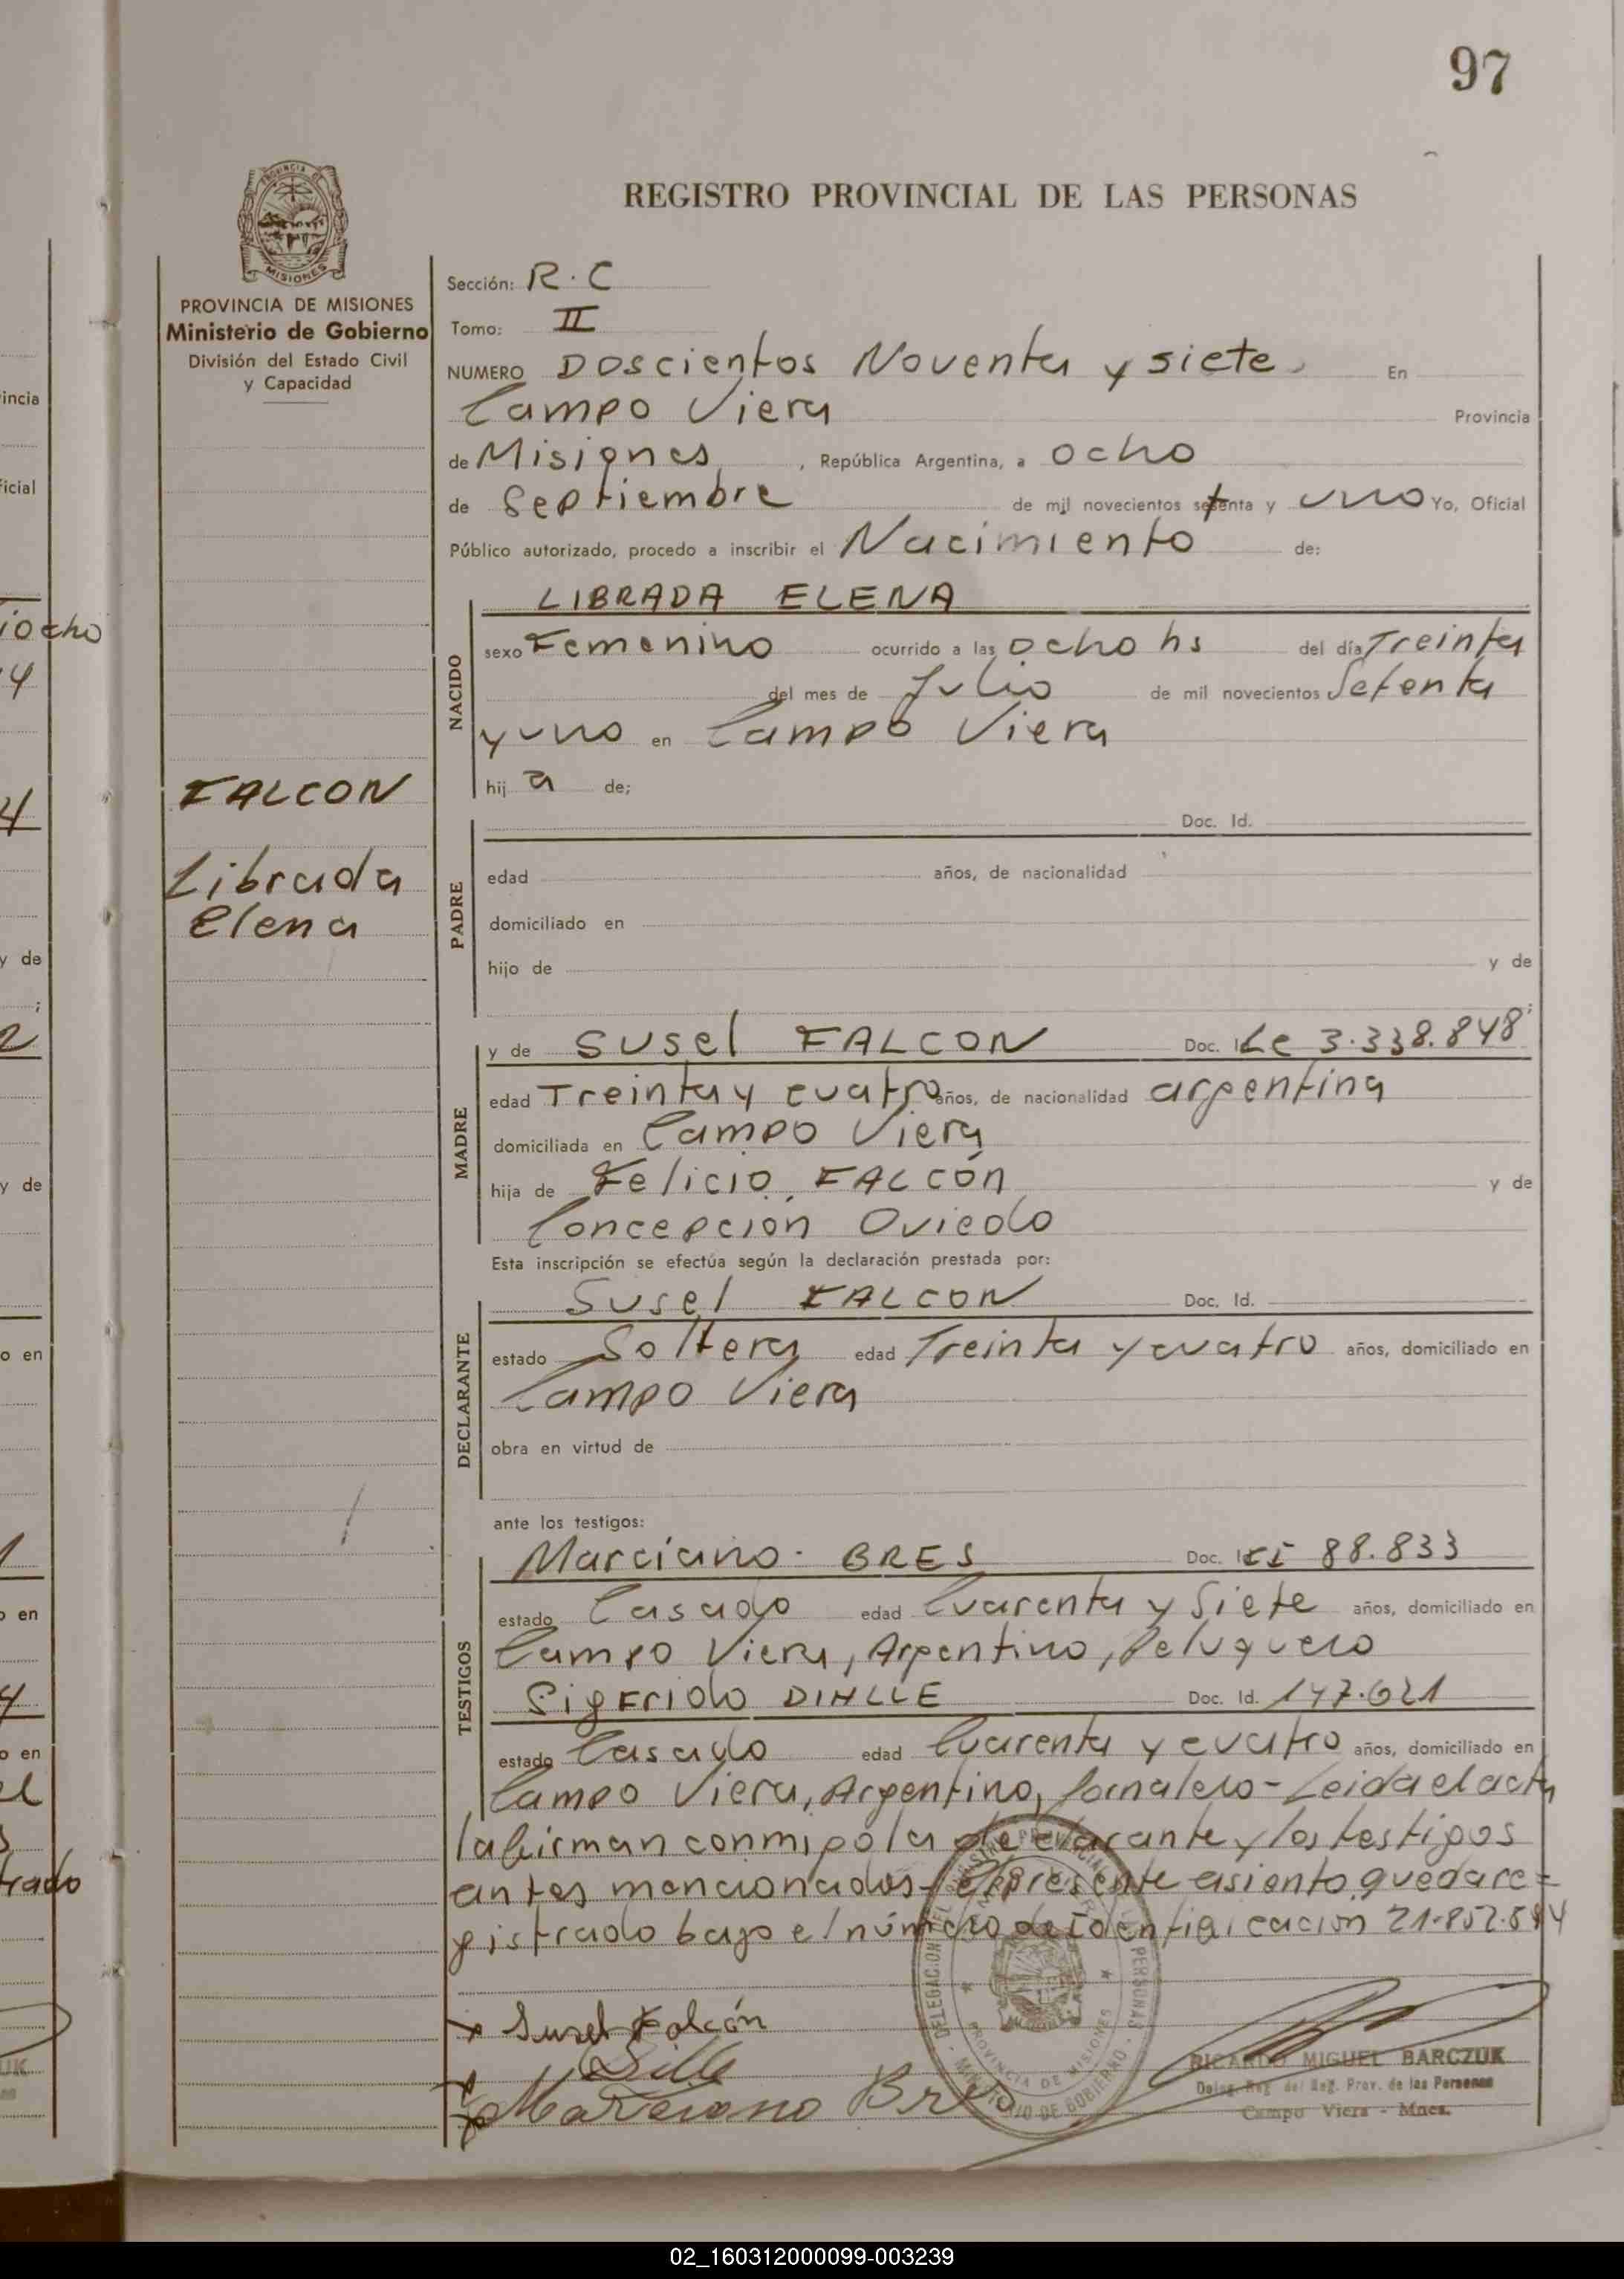 97
REGISTRO PROVINCIAL DE LAS PERSONAS
PROVINCIA DE MISIONES
Ministerio de Gobierno
División del Estado Civil
y Capacidad
Sección: R.C
Tomo: II
NUMERO Doscientos Noventa y siete. En
Campo Viera Provincia
de Misiones, República Argentina, a ocho
de Septiembre de mil novecientos setenta y uno Yo, Oficial
Público autorizado, procedo a inscribir el Nacimiento de:
FALCON
Librada
Elena
NACIDO
LIBRADA ELENA
sexo Femenino ocurrido a las ocho hs del día Treinta
del mes de Julio de mil novecientos Setenta
y uno en Campo Viera
hij a de;
PADRE
Doc. Id.
edad años, de nacionalidad
domiciliado en
hijo de y de
MADRE
y de Susel FALCON Doc. Lc 3.338.848
edad Treinta y cuatro años, de nacionalidad argentina
domiciliada en Campo Viera
hija de Felicio FALCÓN y de
Concepción Oviedo
Esta inscripción se efectúa según la declaración prestada por:
DECLARANTE
Susel FALCON Doc. Id.
estado Soltera edad Treinta y cuatro años, domiciliado en
Campo Viera
obra en virtud de
ante los testigos:
TESTIGOS
Marciano BRES Doc. CI 88.833
estado Casado edad Cuarenta y Siete años, domiciliado en
Campo Viera, Argentino, Peluquero
Sigfrido DIHLLE Doc. Id. 147.621
estado Casado edad Cuarenta y cuatro años, domiciliado en
Campo Viera, Argentino, Jornalero - Leida el acta
la firman conmigo la declarante y los testigos
antes mencionados - El presente asiento queda re=
gistrado bajo el número de Identificacion
Susel Falcón
Dille
Marciano Bres
RICARDO MIGUEL BARCZUK
Deleg. Reg. del Reg. Prov. de las Personas
Campo Viera - Mnes.
02_160312000099-003239